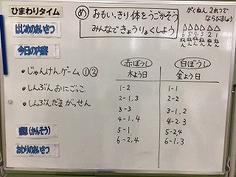 ひまわりタイム
はじめのあいさつ
今日の内容
・じゃんけんゲーム①②
・しんぶんおにごっこ
・しんぶんたまがっせん
感想(かんそう)
おわりのあいさつ
め おもいっきり体をうごかそう
みんなできょうりょくしよう
がくねん 2れつで
ならびましょう
赤ぼうし
木よう日
1-2
2-1.3
3-3
4-1.3
5-1
6-2.4
白ぼうし
金よう日
1-1
2-2
3-1.2
4-2
5-2.4
6-1.3